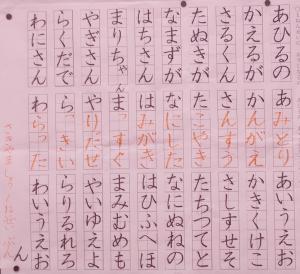 あひるの あみどり あいうえお
かえるが かんがえ かきくけこ
さるくん さんすう さしすせそ
たぬきが たこやき たちつてと
なまずが なにした なにぬねの
はちさん はみがき はひふへほ
まりちゃん まっすぐ まみむめも
やぎさん やりだぜ やいゆえよ
らくだで らっきい らりるれろ
わにさん わらった わいうえお
ん